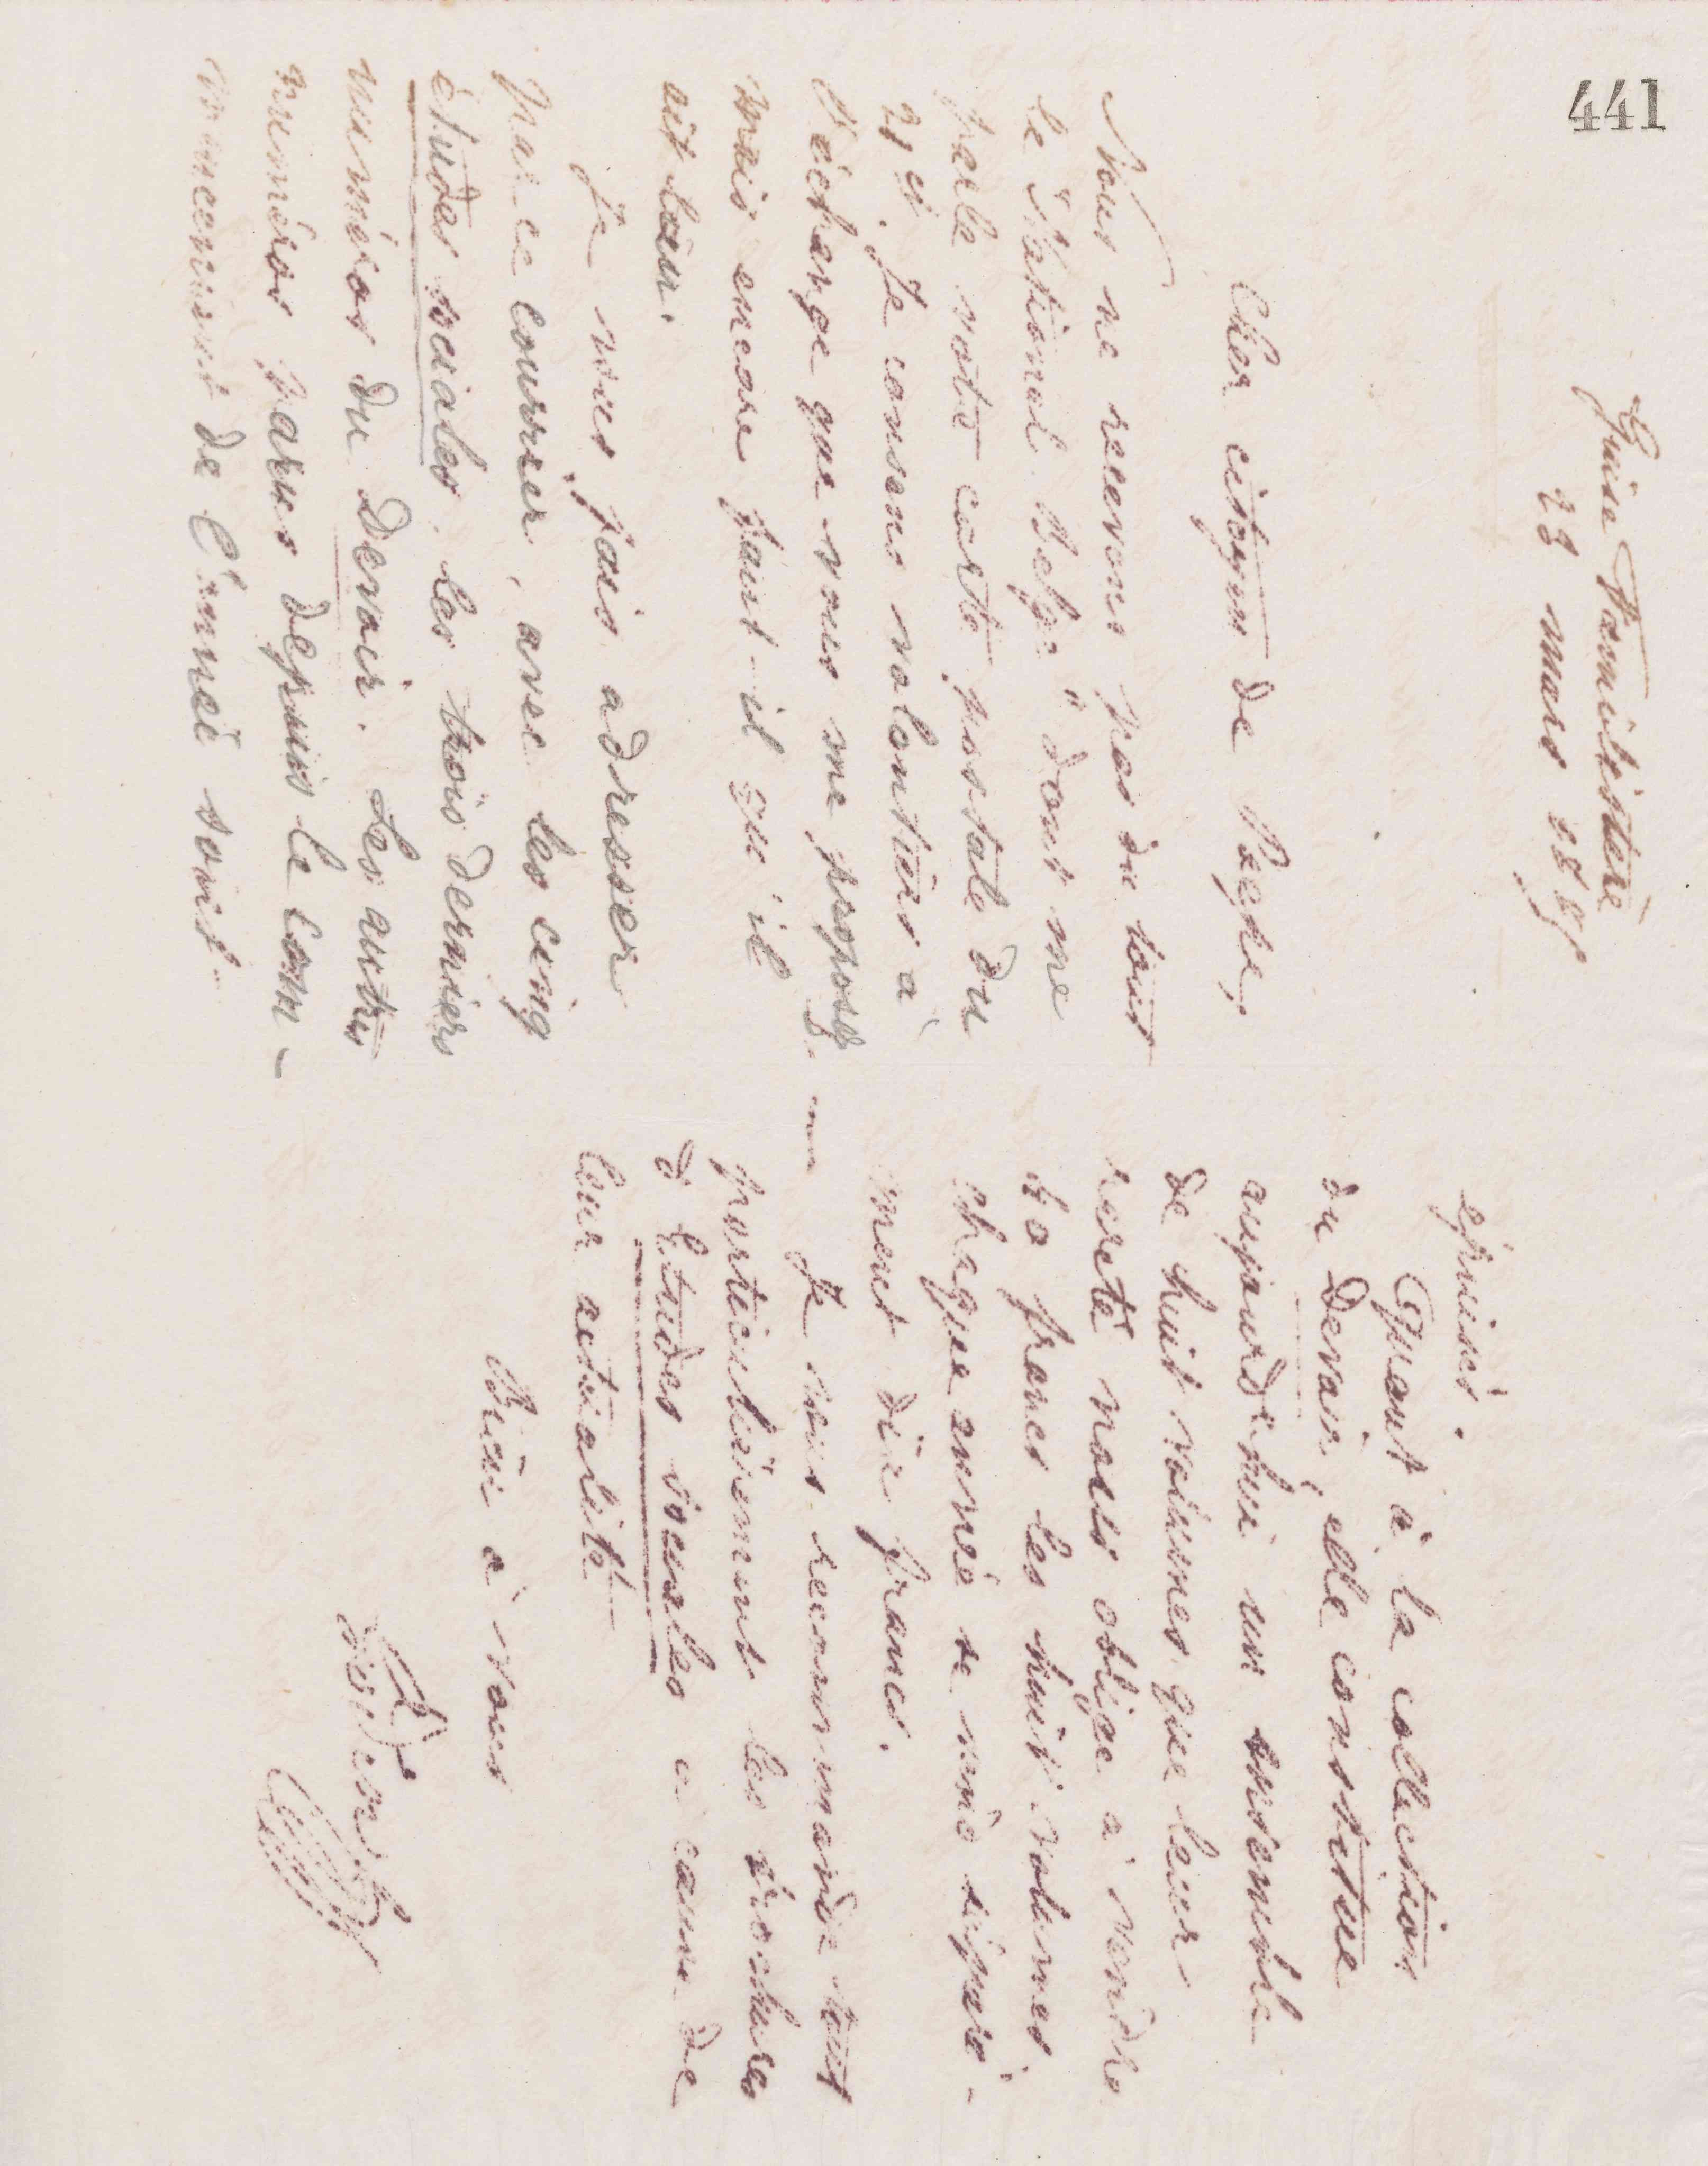 441
Guise Familistère
23 mars 1885
Cher citoyen de Paepe,
Nous ne recevons pas du tout
le National Belge" dont me
parle votre carte postale du
21 ct. Je consens volontiers à
l'échange que vous me proposez
mais encore faut-il qu'il
ait lieu.
Je vous fais adresser
par ce courrier, avec les cinq
études sociales, les trois derniers
numéros du Devoir. Les autres
numéros parus depuis le com-
mencement de l'année sont
épuisés.
Quant à la collection
du Devoir, elle constitue
aujourd'hui un ensemble
de huit volumes que leur
rareté nous oblige à vendre
40 francs les huit volumes
chaque année se vend séparé-
ment dix francs.
Je vous recommande tout
particulièrement les brochures
d'Etudes sociales à cause de
leur actualité.
Bien à vous
Godin